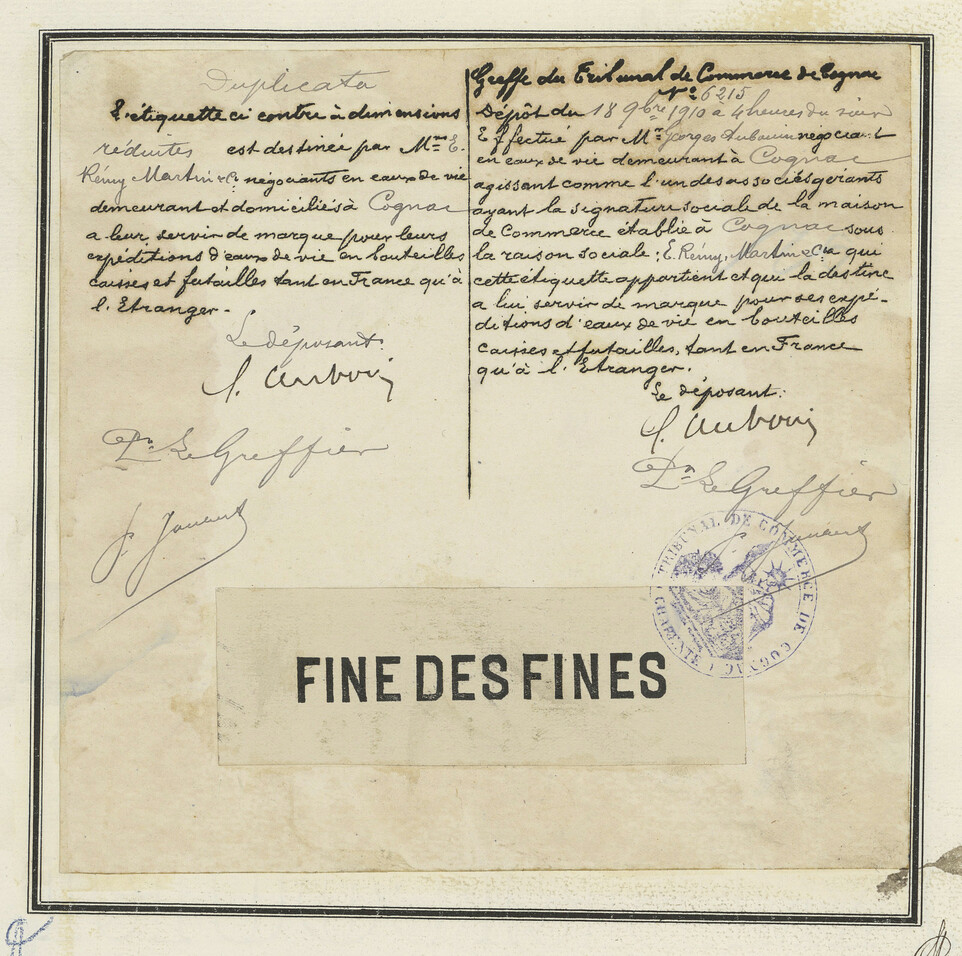 Duplicata
L'étiquette ci contre à dimensions
réduites est destinée par Mrs E.
Rémy Martin & Co négociants en eaux de vie
demeurant et domiciliés à Cognac
a leur servir de marque pour leurs
expéditions d'eaux de vie en bouteilles
caisses et futailles tant en France qu'à
l'Etranger.-
Le déposant:
Pn. Le Greffier
Greffe du Tribunal de Commerce de Cognac
No 6215
Dépôt du 18 9bre 1910 à 4 heures du soir
Effectué par Mr Georges Auboin négociant
en eaux de vie demeurant à Cognac
agissant comme l'un des associés gérants
ayant la signature sociale de la maison
de Commerce établie à Cognac sous
la raison sociale: E. Rémy, Martin & Co a qui
cette étiquette appartient et qui la destine
a lui servir de marque pour ses expé-
ditions d'eaux de vie en bouteilles
caisses et futailles, tant en France
qu'à l'Etranger.
Le déposant:
Pn. Le Greffier
TRIBUNAL DE COMMERCE DE COGNAC
(CHARENTE)
FINE DES FINES